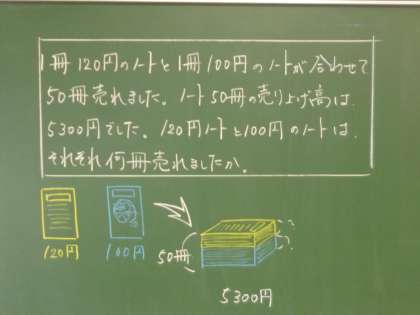 1冊120円のノートと1冊100円のノートが合わせて
50冊売れました。ノート50冊の売り上げ高は、
5300円でした。120円ノートと100円のノートは、
それぞれ何冊売れましたか。
120円
100円
50冊
5300円